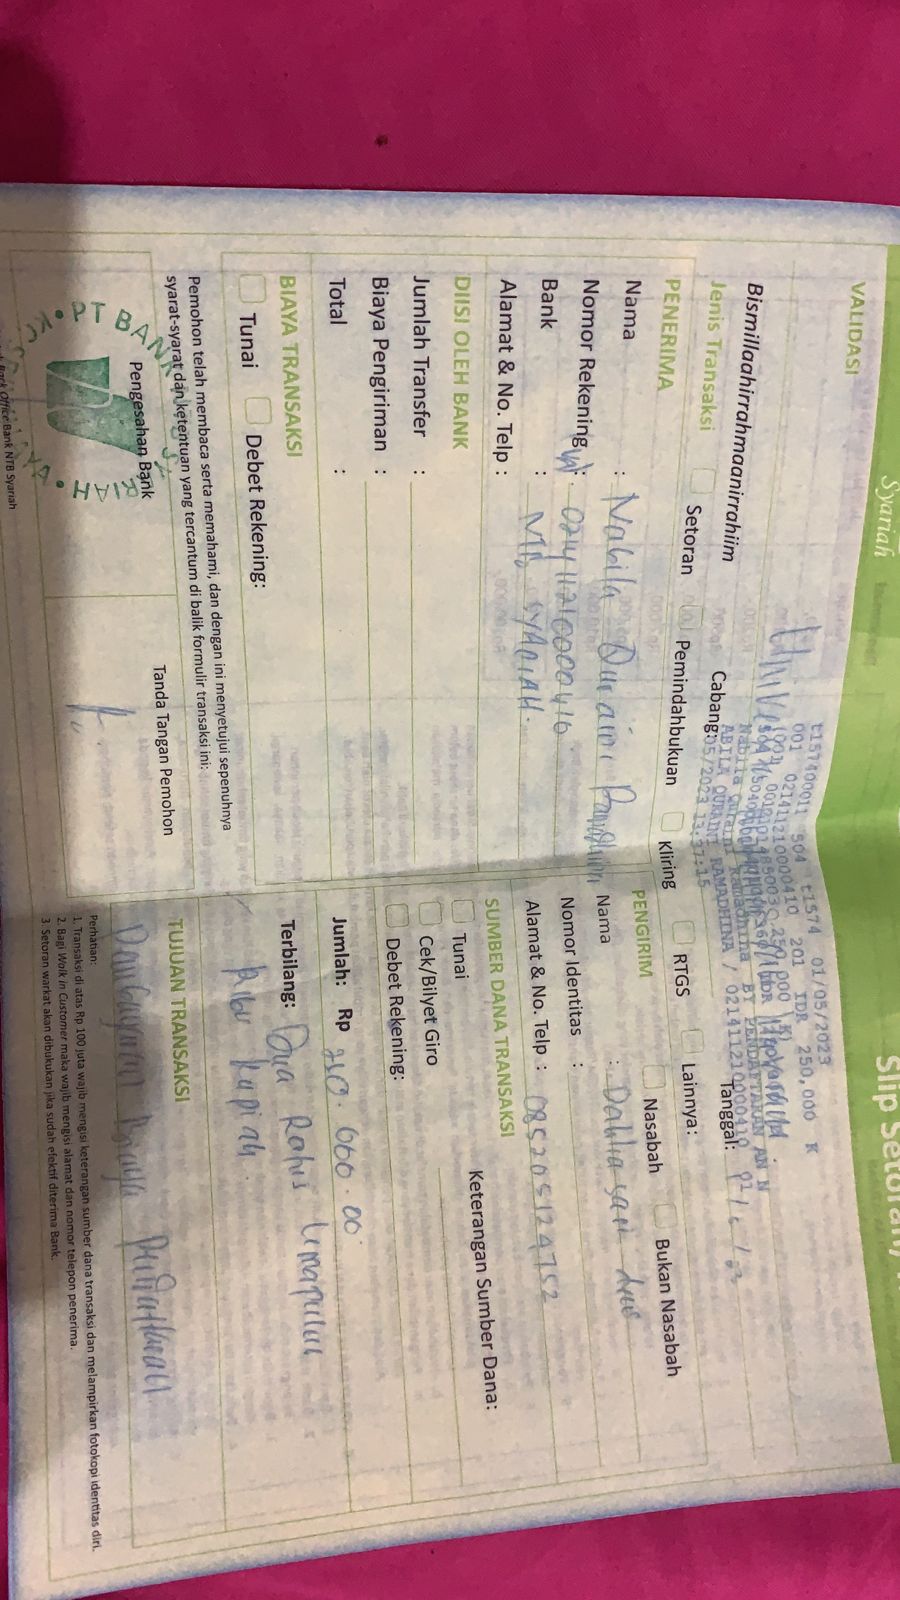 Syariah
Slip Setoran/
VALIDASI
t157400011 504 t1574 01/05/2023
001 0214112100000410 201 IDR 250,000 K
Nabila Quraini Ramadhina BY PENDAFTARAN AN N
ABILA QURAINI RAMADHINA / 0214112100000410
05/2023 13:37:15
Bismillaahirrahmaanirrahiim
Cabang:
Tanggal:
Jenis Transaksi
Setoran
Pemindahbukuan
Kliring
RTGS
Lainnya:
PENERIMA
Nama : Nabila Quraini
Nomor Rekening :
Bank : NTB SYARIAH.
Alamat & No. Telp :
PENGIRIM
Nasabah
Bukan Nasabah
Nama : Dahlia sari dewi
Nomor Identitas :
Alamat & No. Telp : 085205124752
DIISI OLEH BANK
Jumlah Transfer :
Biaya Pengiriman :
Total :
SUMBER DANA TRANSAKSI
Tunai
Cek/Bilyet Giro
Debet Rekening:
Keterangan Sumber Dana:
BIAYA TRANSAKSI
Tunai
Debet Rekening:
Jumlah: Rp 250.000.00
Terbilang: Dua Ratus Limapuluh
Ribu Rupiah.
Pemohon telah membaca serta memahami, dan dengan ini menyetujui sepenuhnya
syarat-syarat dan ketentuan yang tercantum di balik formulir transaksi ini:
Pengesahan Bank
Tanda Tangan Pemohon
PT BANK
SYARIAH
Back Office Bank NTB Syariah
TUJUAN TRANSAKSI
Pembayaran Biaya Pendaftaran
Perhatian:
1. Transaksi di atas Rp 100 juta wajib mengisi keterangan sumber dana transaksi dan melampirkan fotokopi identitas diri.
2. Bagi Walk in Customer maka wajib mengisi alamat dan nomor telepon penerima.
3. Setoran warkat akan dibukukan jika sudah efektif diterima Bank.